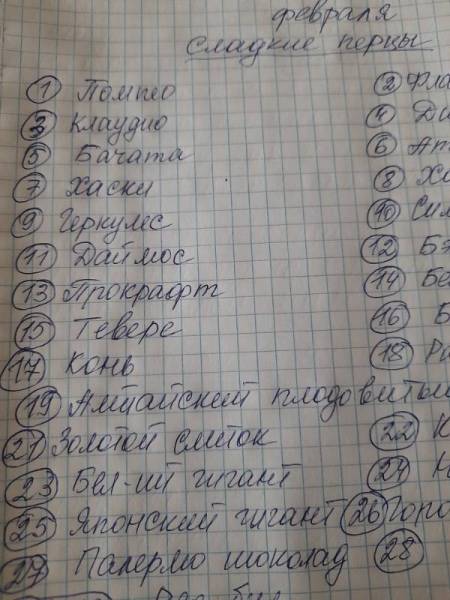 февраля
сладкие перцы
1 Помпео 2 Фла
3 Клаудио 4 Ди
5 Бачата 6 Ат
7 Хаски 8 Ха
9 Геркулес 10 Сил
11 Даймос 12 Бэ
13 Прокрафт 14 Бе
15 Тевере 16 Б
17 Конь 18 Ра
19 Алтайский плодовитый
21 Золотой слиток 22 К
23 Бел-ий гигант 24 Н
25 Японский гигант 26 Горо
27 Палермо шоколад 28